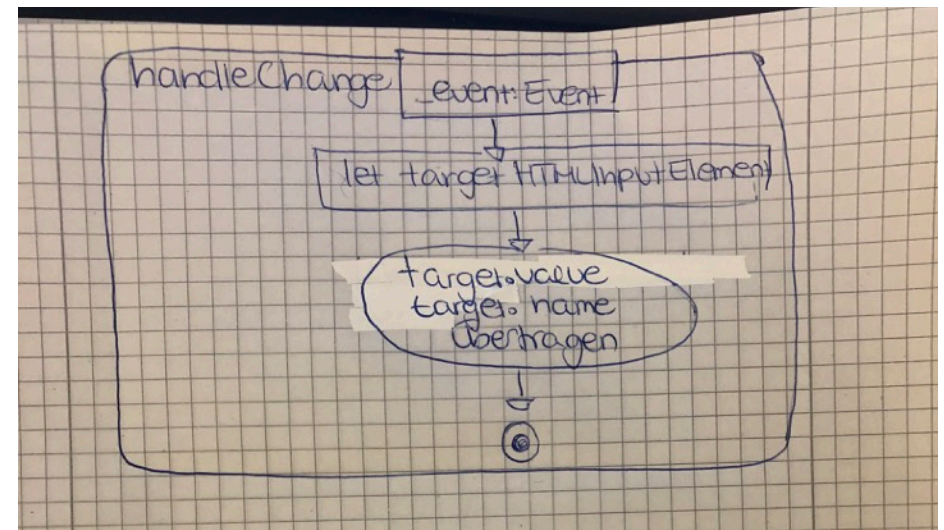 handleChange
_event: Event
let target HTMLInputElement
target.value
target.name
übertragen